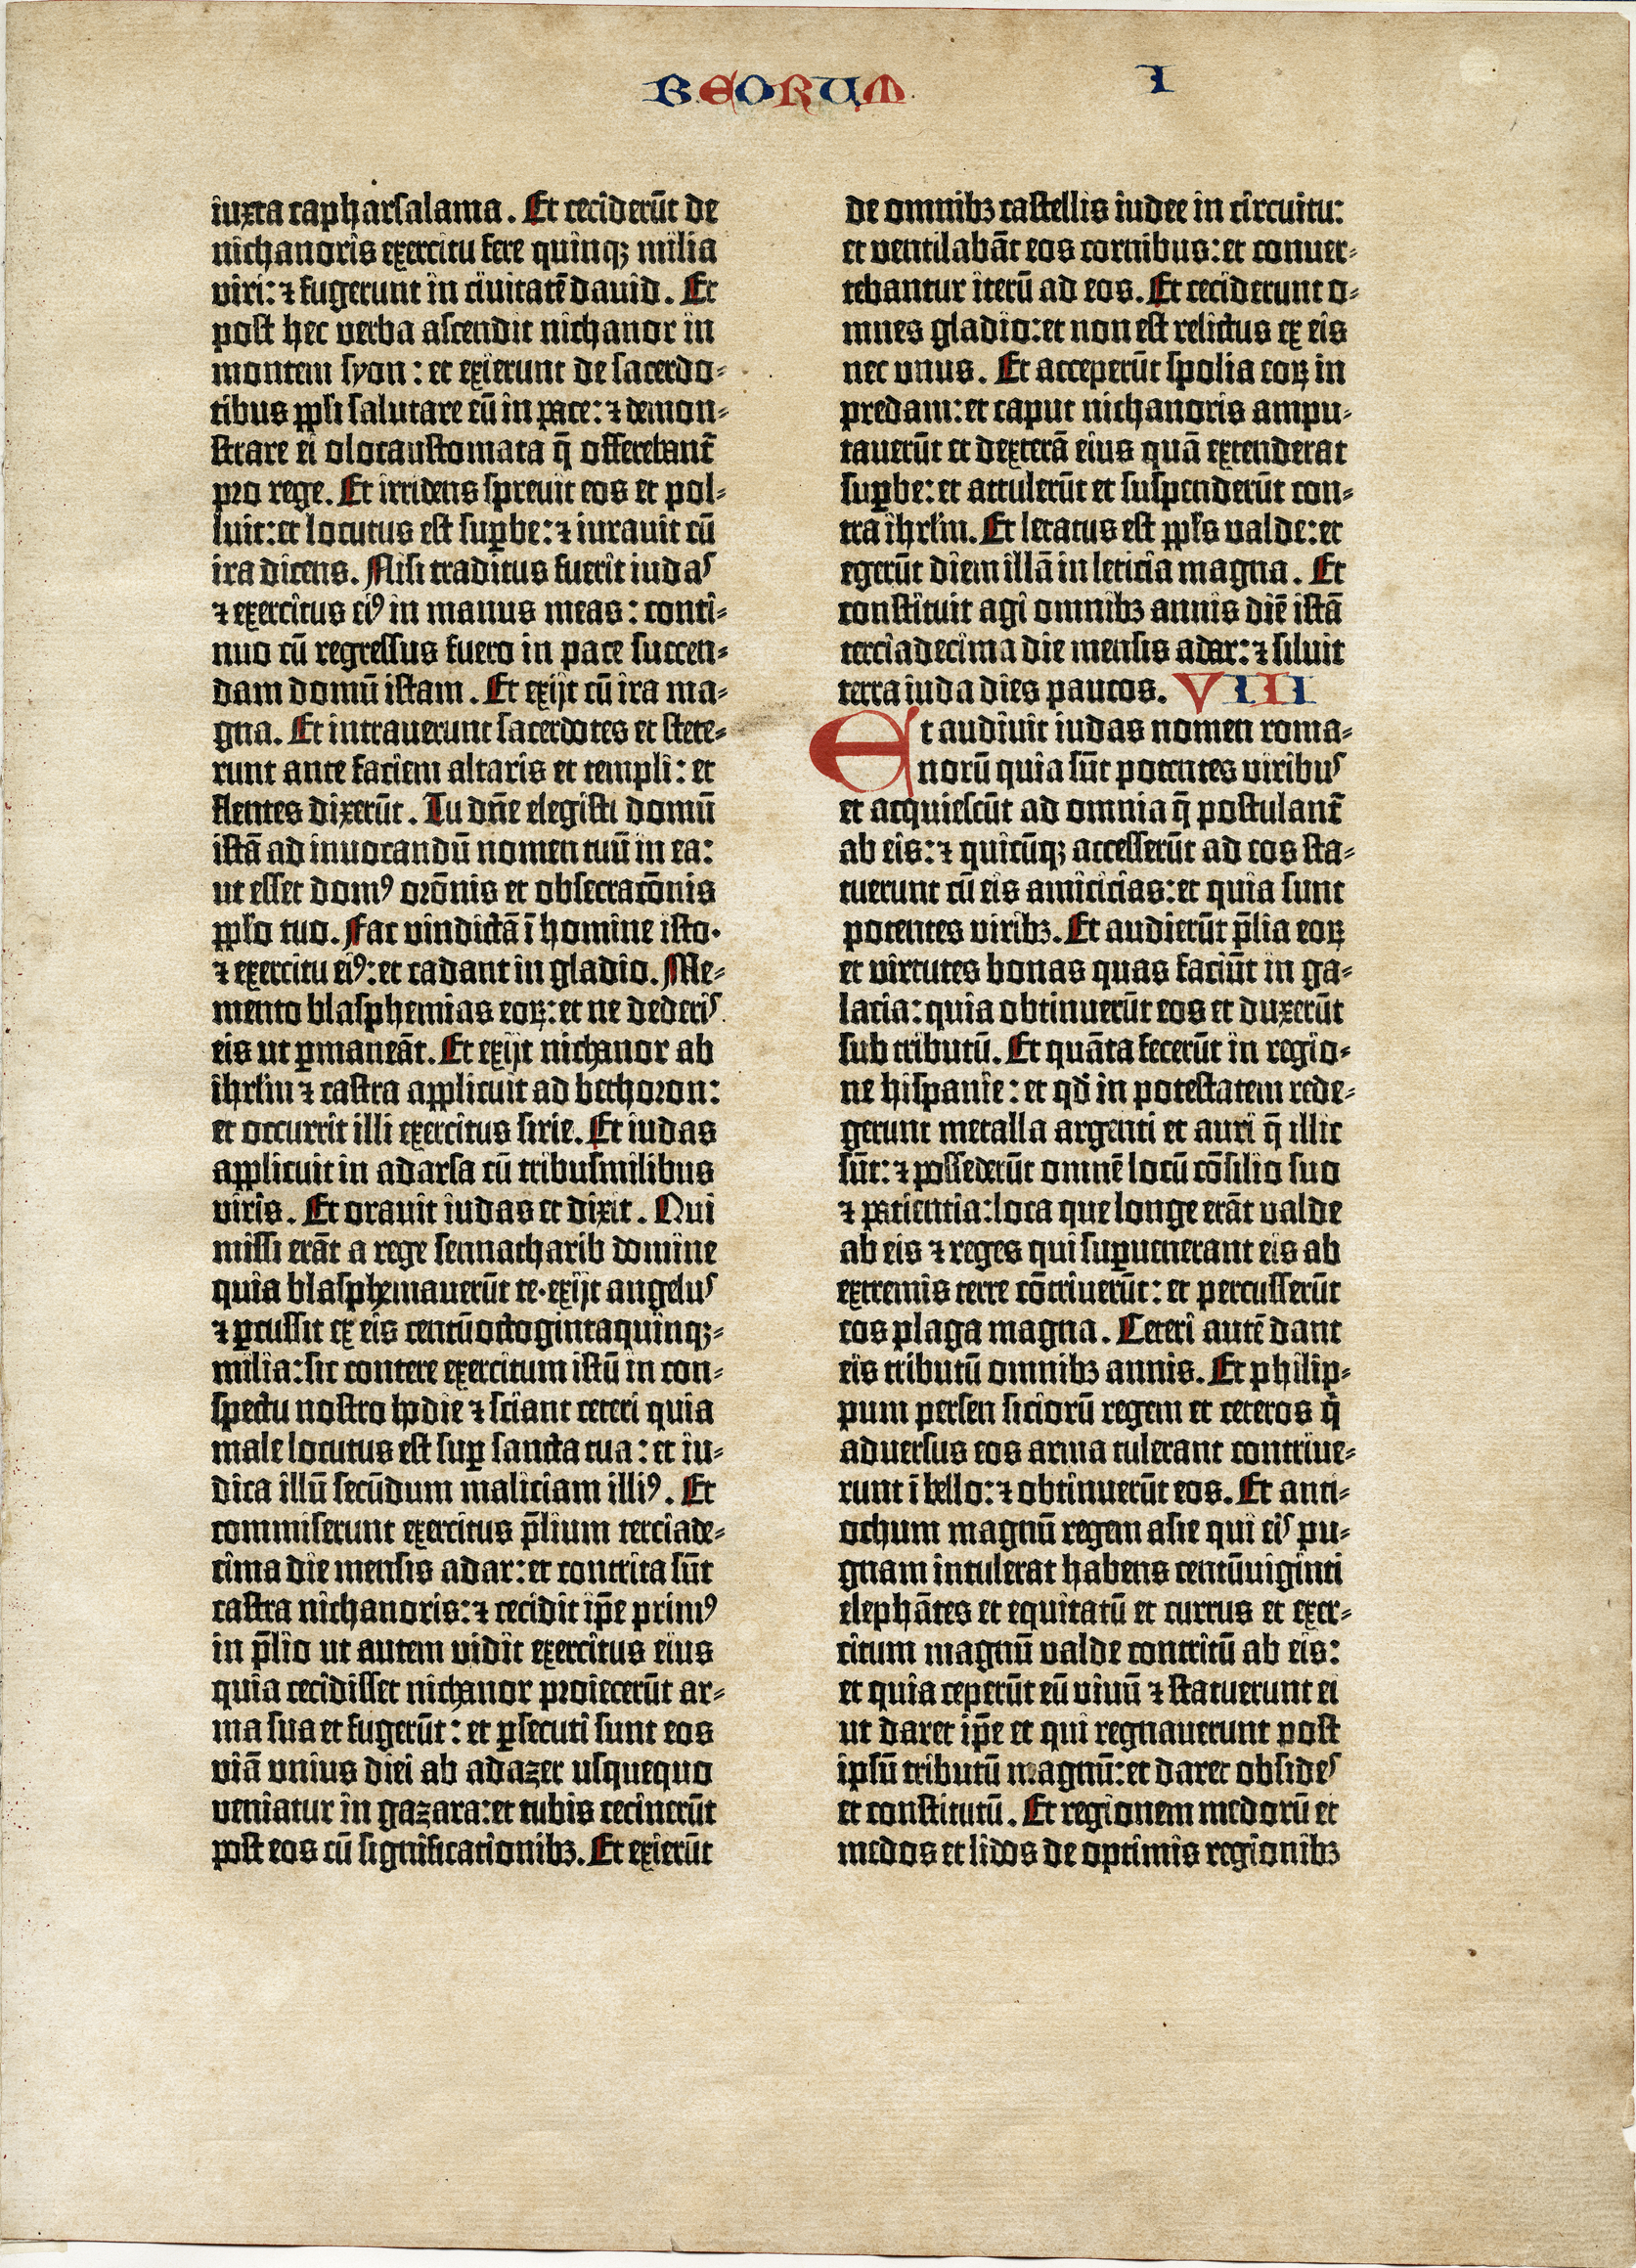 BEORUM I
iuxta capharsalama. Et ceciderūt de
nichanoris exercitu fere quinqꝫ milia
viri: ⁊ fugerunt in civitatē david. Et
post hec verba ascendit nichanor in
montem syon: et exierunt de sacerdo-
tibus ppli salutare eū in pace: ⁊ demon-
strare ei olocaustomata q̄ offerebant̄
pro rege. Et irridens sprevit eos et pol-
luit: et locutus est suꝑbe: ⁊ iuravit cū
ira dicens. Nisi traditus fuerit iudas
⁊ exercitus eiꝰ in manus meas: conti-
nuo cū regressus fuero in pace succen-
dam domū istam. Et exijt cū ira ma-
gna. Et intraverunt sacerdotes et stete-
runt ante faciem altaris et templi: et
flentes dixerūt. Tu dn̄e elegisti domū
istā ad invocandū nomen tuū in ea:
ut esset domꝰ orōnis et obsecracōnis
pplo tuo. Fac vindictā ī homine isto·
⁊ exercitu eiꝰ: et cadant in gladio. Me-
mento blasphemias eoꝝ: et ne dederis
eis ut ꝑmaneāt. Et exijt nichanor ab
ihrlm ⁊ castra applicuit ad bethoron:
et occurrit illi exercitus sirie. Et iudas
applicuit in adarsa cū tribusmilibus
viris. Et oravit iudas et dixit. Qui
missi erāt a rege sennacharib domine
quia blasphemaverūt te·exijt angelus
⁊ ꝑcussit ex eis centūoctogintaquinqꝫ-
milia: sic contere exercitum istū in con-
spectu nostro hodie ⁊ sciant ceteri quia
male locutus est suꝑ sancta tua: et iu-
dica illū secūdum maliciam illiꝰ. Et
commiserunt exercitus p̄lium terciade-
cima die mensis adar: et contrita sūt
castra nichanoris: ⁊ cecidit ip̄e primꝰ
in p̄lio ut autem vidit exercitus eius
quia cecidisset nichanor proiecerūt ar-
ma sua et fugerūt: et ꝑsecuti sunt eos
viā unius diei ab adazer usquequo
veniatur in gazara: et tubis cecinerūt
post eos cū significationibꝫ. Et exierūt
de omnibꝫ castellis iudee in circuitu:
et ventilabāt eos cornibus: et conver-
tebantur iterū ad eos. Et ceciderunt o-
mnes gladio: et non est relictus ex eis
nec unus. Et acceperūt spolia eoꝝ in
predam: et caput nichanoris ampu-
taverūt et dexterā eius quā extenderat
suꝑbe: et attulerūt et suspenderūt con-
tra ihrlm. Et letatus est ppls valde: et
egerūt diem illā in leticia magna. Et
constituit agi omnibꝫ annis diē istā
terciadecima die mensis adar: ⁊ siluit
terra iuda dies paucos. VIII
Et audivit iudas nomen roma-
norū quia sūt potentes viribus
et acquiescūt ad omnia q̄ postulant̄
ab eis: ⁊ quicūqꝫ accesserūt ad eos sta-
tuerunt cū eis amicicias: et quia sunt
potentes viribꝫ. Et audierūt p̄lia eoꝝ
et virtutes bonas quas faciūt in ga-
lacia: quia obtinuerūt eos et duxerūt
sub tributū. Et quāta fecerūt in regio-
ne hispanie: et qd̄ in potestatem rede-
gerunt metalla argenti et auri q̄ illic
sūt: ⁊ possederūt omnē locū cōsilio suo
⁊ patientia: loca que longe erāt valde
ab eis ⁊ reges qui suꝑvenerant eis ab
extremis terre cōtriverūt: et percusserūt
eos plaga magna. Ceteri autē dant
eis tributū omnibꝫ annis. Et philip-
pum persen siciorū regem et ceteros q̇
adversus eos arma tulerant contrive-
runt ī bello: ⁊ obtinuerūt eos. Et anti-
ochum magnū regem asie qui eis pu-
gnam intulerat habens centūviginti
elephātes et equitatū et currus et exer-
citum magnū valde contritū ab eis:
et quia ceperūt eū vivū ⁊ statuerunt ei
ut daret ip̄e et qui regnaverunt post
ipsū tributū magnū: et daret obsides
et constitutū. Et regionem medorū et
medos et lidos de optimis regionibꝫ